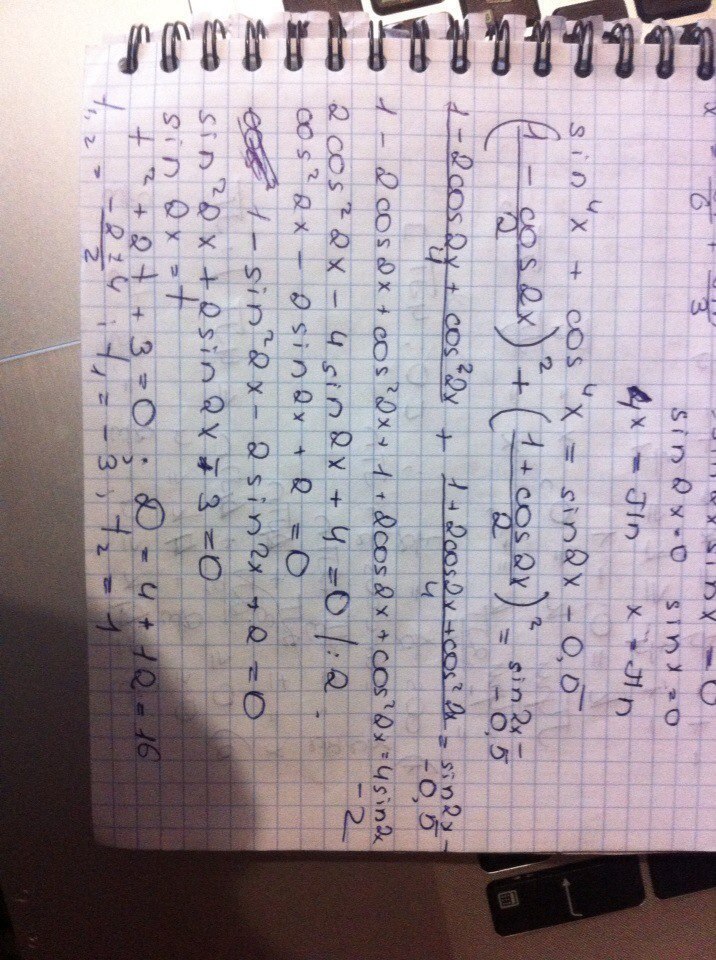 sin 2x = 0 sin x = 0
4x = πn x = πn
sin⁴x + cos⁴x = sin2x - 0,5
((1 - cos2x)/2)² + ((1 + cos2x)/2)² = sin2x - - 0,5
(1 - 2cos2x + cos²2x)/4 + (1 + 2cos2x + cos²2x)/4 = sin2x - - 0,5
1 - 2cos2x + cos²2x + 1 + 2cos2x + cos²2x = 4sin2x - 2
2cos²2x - 4sin2x + 4 = 0 /:2
cos²2x - 2sin2x + 2 = 0
1 - sin²2x - 2sin2x + 2 = 0
sin²2x + 2sin2x - 3 = 0
sin2x = t
t² + 2t + 3 = 0; D = 4 + 12 = 16
t₁,₂ = (-2±4)/2; t₁ = -3; t₂ = 1